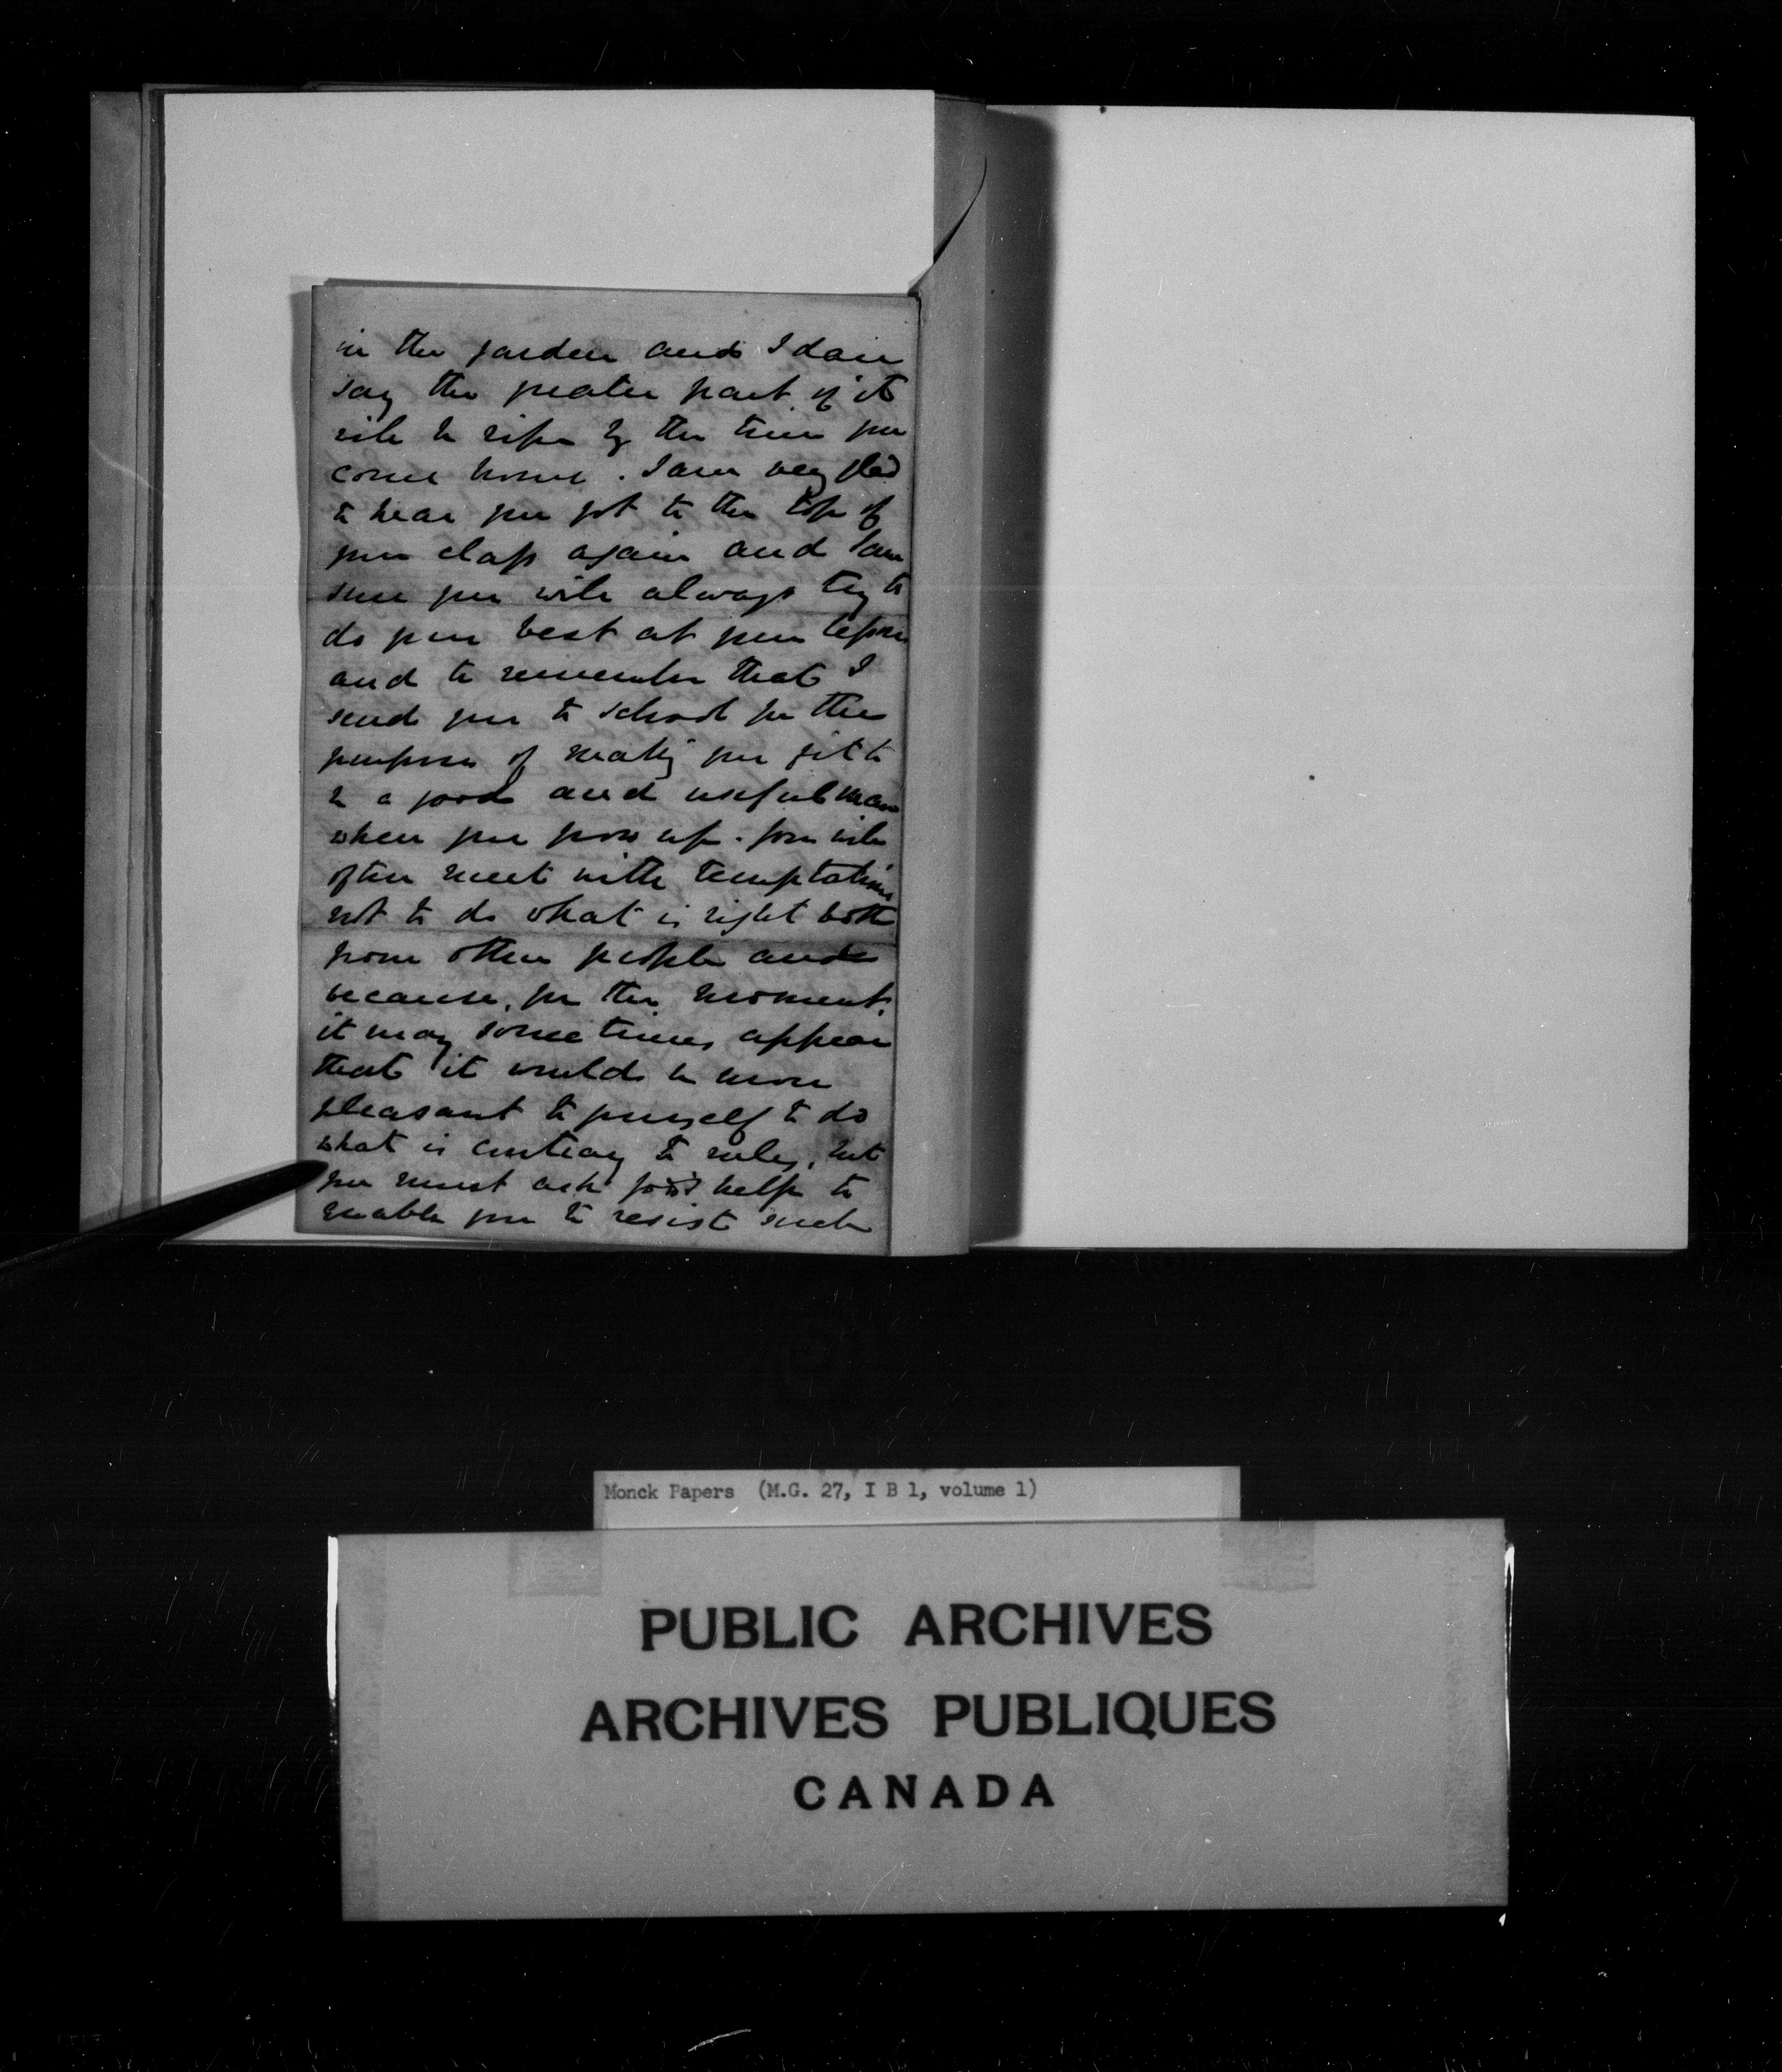 in the garden and I dare
say the greater part of it
will be ripe by the time you
come home. I am very glad
to hear you got to the top of
your class again and I am
sure you will always try to
do your best at your lessons
and to remember that I
send you to school for the
purpose of making you fit to
be a good and useful man
when you grow up. You will
often meet with temptations
not to do what is right both
from other people and
because, for the moment,
it may sometimes appear
that it would be more
pleasant to yourself to do
what is contrary to rules, but
you must ask God's help to
enable you to resist such
Monck Papers (M.G. 27, I B 1, volume 1)
PUBLIC ARCHIVES
ARCHIVES PUBLIQUES
CANADA